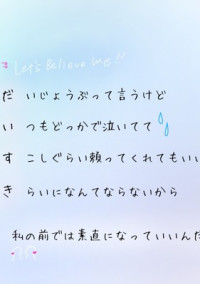 Let's Believe me!!
だ いじょうぶって言うけど
い つもどっかで泣いてて
す こしぐらい頼ってくれてもいい
き らいになんてならないから
私の前では素直になっていいんだ